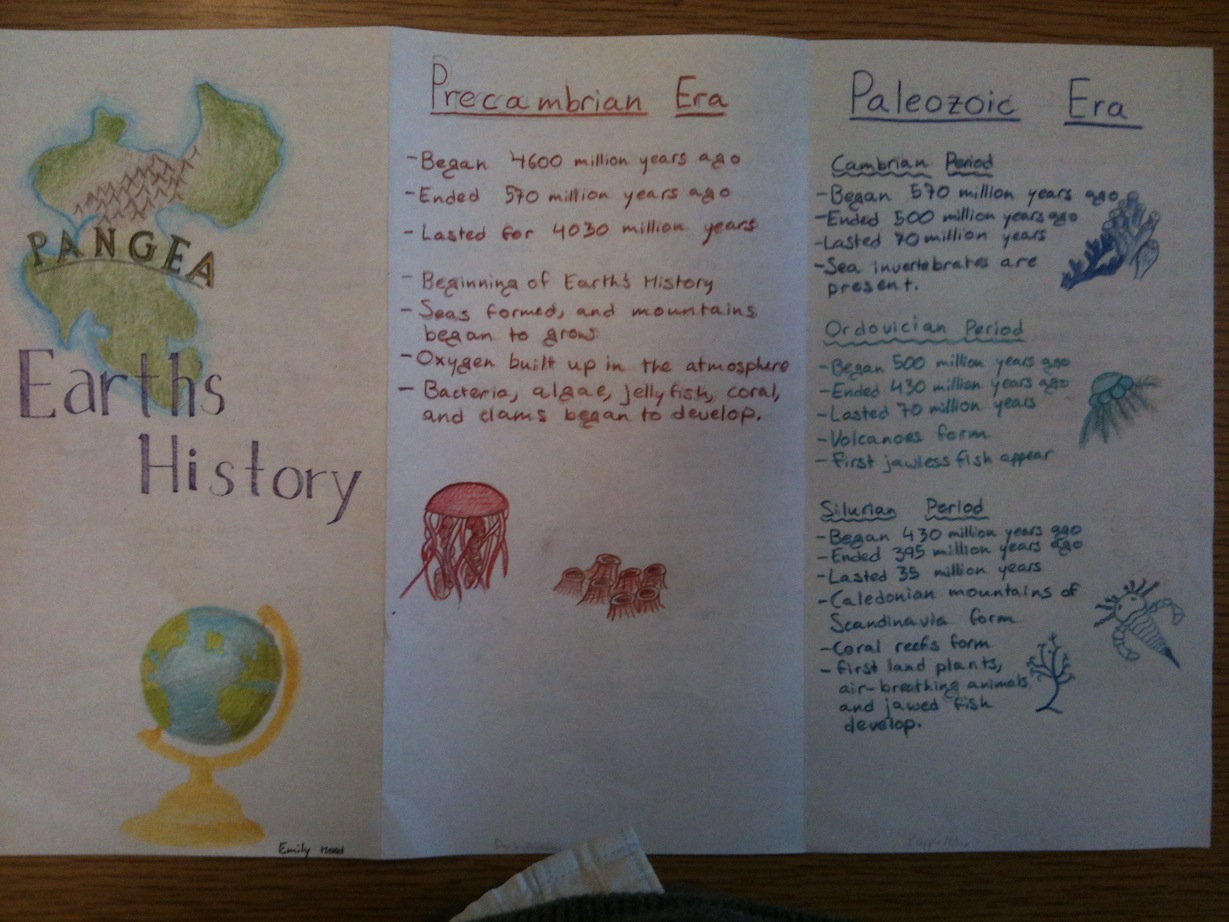 PANGEA
Earths
History
Emily
Precambrian Era
- Began 4600 million years ago
- Ended 570 million years ago
- Lasted for 4030 million years
- Beginning of Earth's History
- Seas formed, and mountains
began to grow
- Oxygen built up in the atmosphere
- Bacteria, algae, jellyfish, coral,
and clams began to develop.
Paleozoic Era
Cambrian Period
- Began 570 million years ago
- Ended 500 million years ago
- Lasted 70 million years
- Sea invertebrates are
present.
Ordovician Period
- Began 500 million years ago
- Ended 430 million years ago
- Lasted 70 million years
- Volcanoes form
- First jawless fish appear
Silurian Period
- Began 430 million years ago
- Ended 395 million years ago
- Lasted 35 million years
- Caledonian mountains of
Scandinavia form
- Coral reefs form
- First land plants,
air-breathing animals,
and jawed fish
develop.